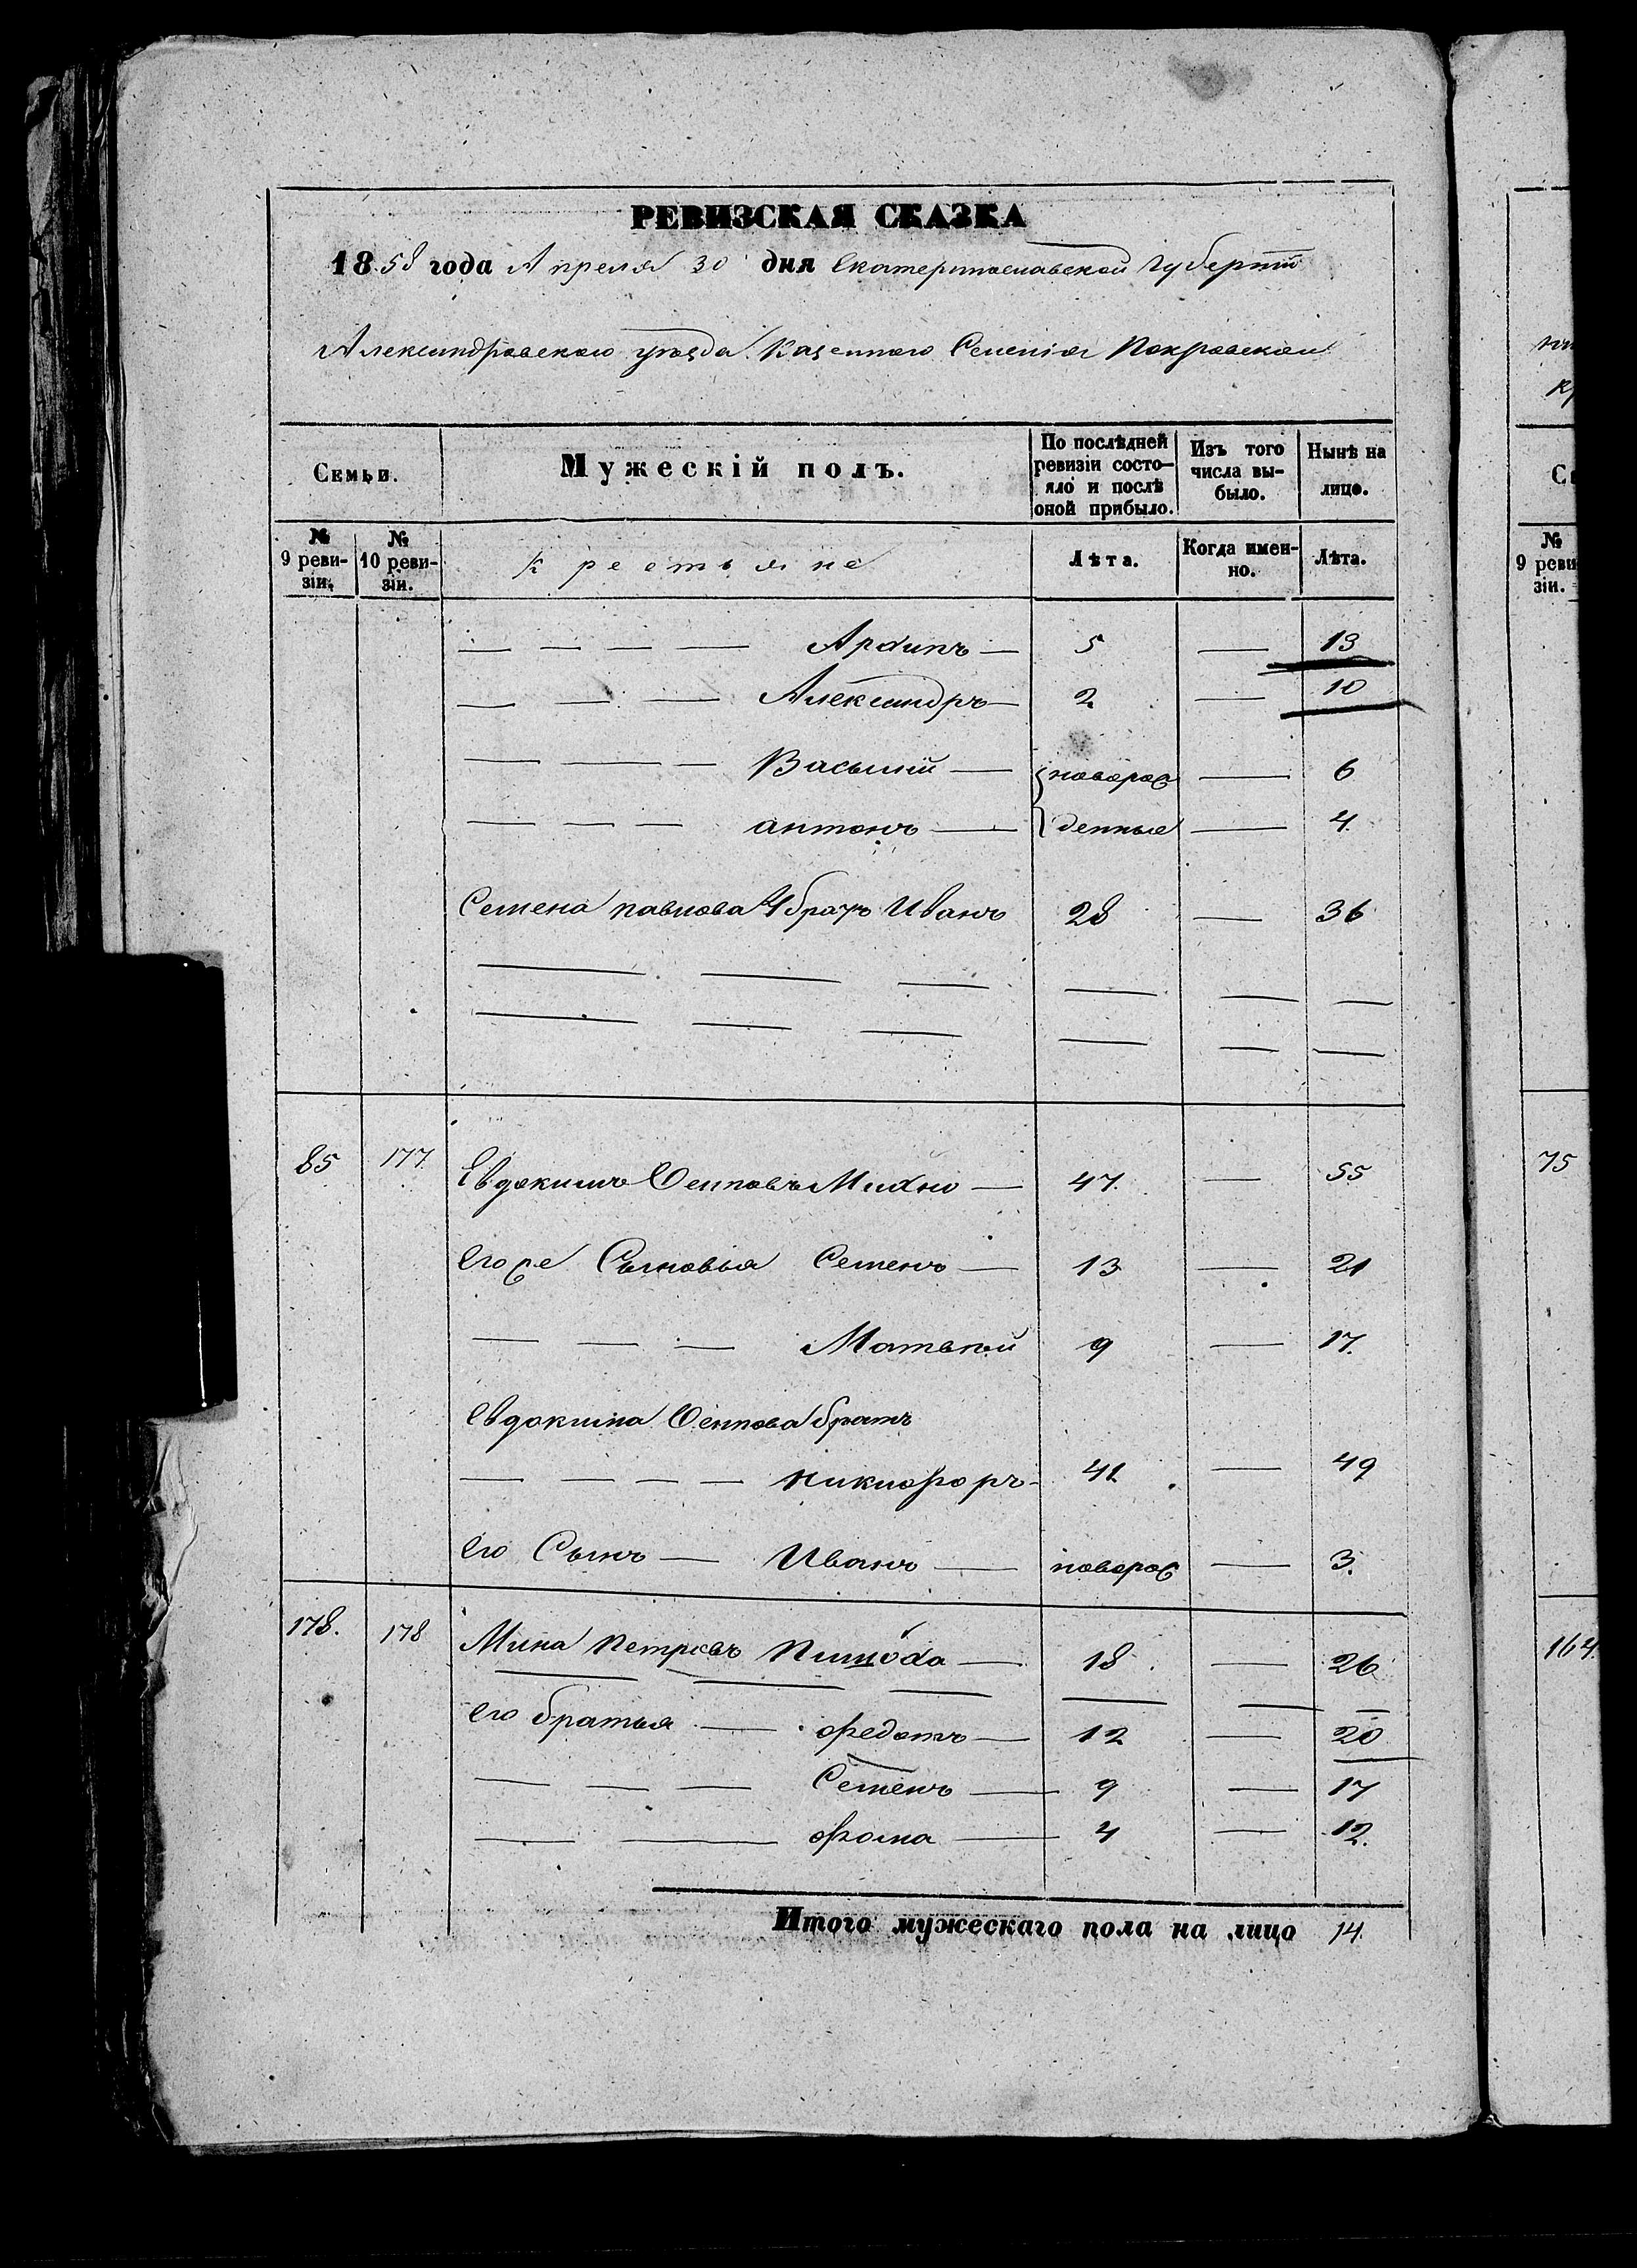 РЕВИЗСКАЯ СКАЗКА
1858 года Апреля 30 дня Екатеринославской Губерніи
Александровскаго уѣзда Казеннаго Селенія Покровскаго
Семьи. Мужескій полъ. По послѣдней ревизіи состояло и послѣ оной прибыло. Изъ того числа выбыло. Нынѣ на лицо.
№ 9 ревизіи. № 10 ревизіи. крестьяне Лѣта. Когда именно. Лѣта.
— — — — Архипъ — 5 — 13
— — — Александръ — 2 — 10
— — — Василій — новорож — 6
— — — антонъ — денные — 4
Семена павлова 4 братъ Иванъ 28 — 36
85 177 Евдокимъ Осиповъ Михно — 47 — 55
Егоже Сыновья Семенъ — 13 — 21
— — — Матвѣй 9 — 17
Евдокима Осипова братъ
— — — — никифоръ 41 — 49
Его Сынъ — Иванъ —новорож — 3.
178. 178 Мина Петровъ Пишода — 18 — 26
Его братья — федотъ — 12 — 20
— — — Семенъ — 9 — 17
— — фома — 4 — 12.
Итого мужескаго пола на лицо 14
№ 9 реви
зіи.
75
164.